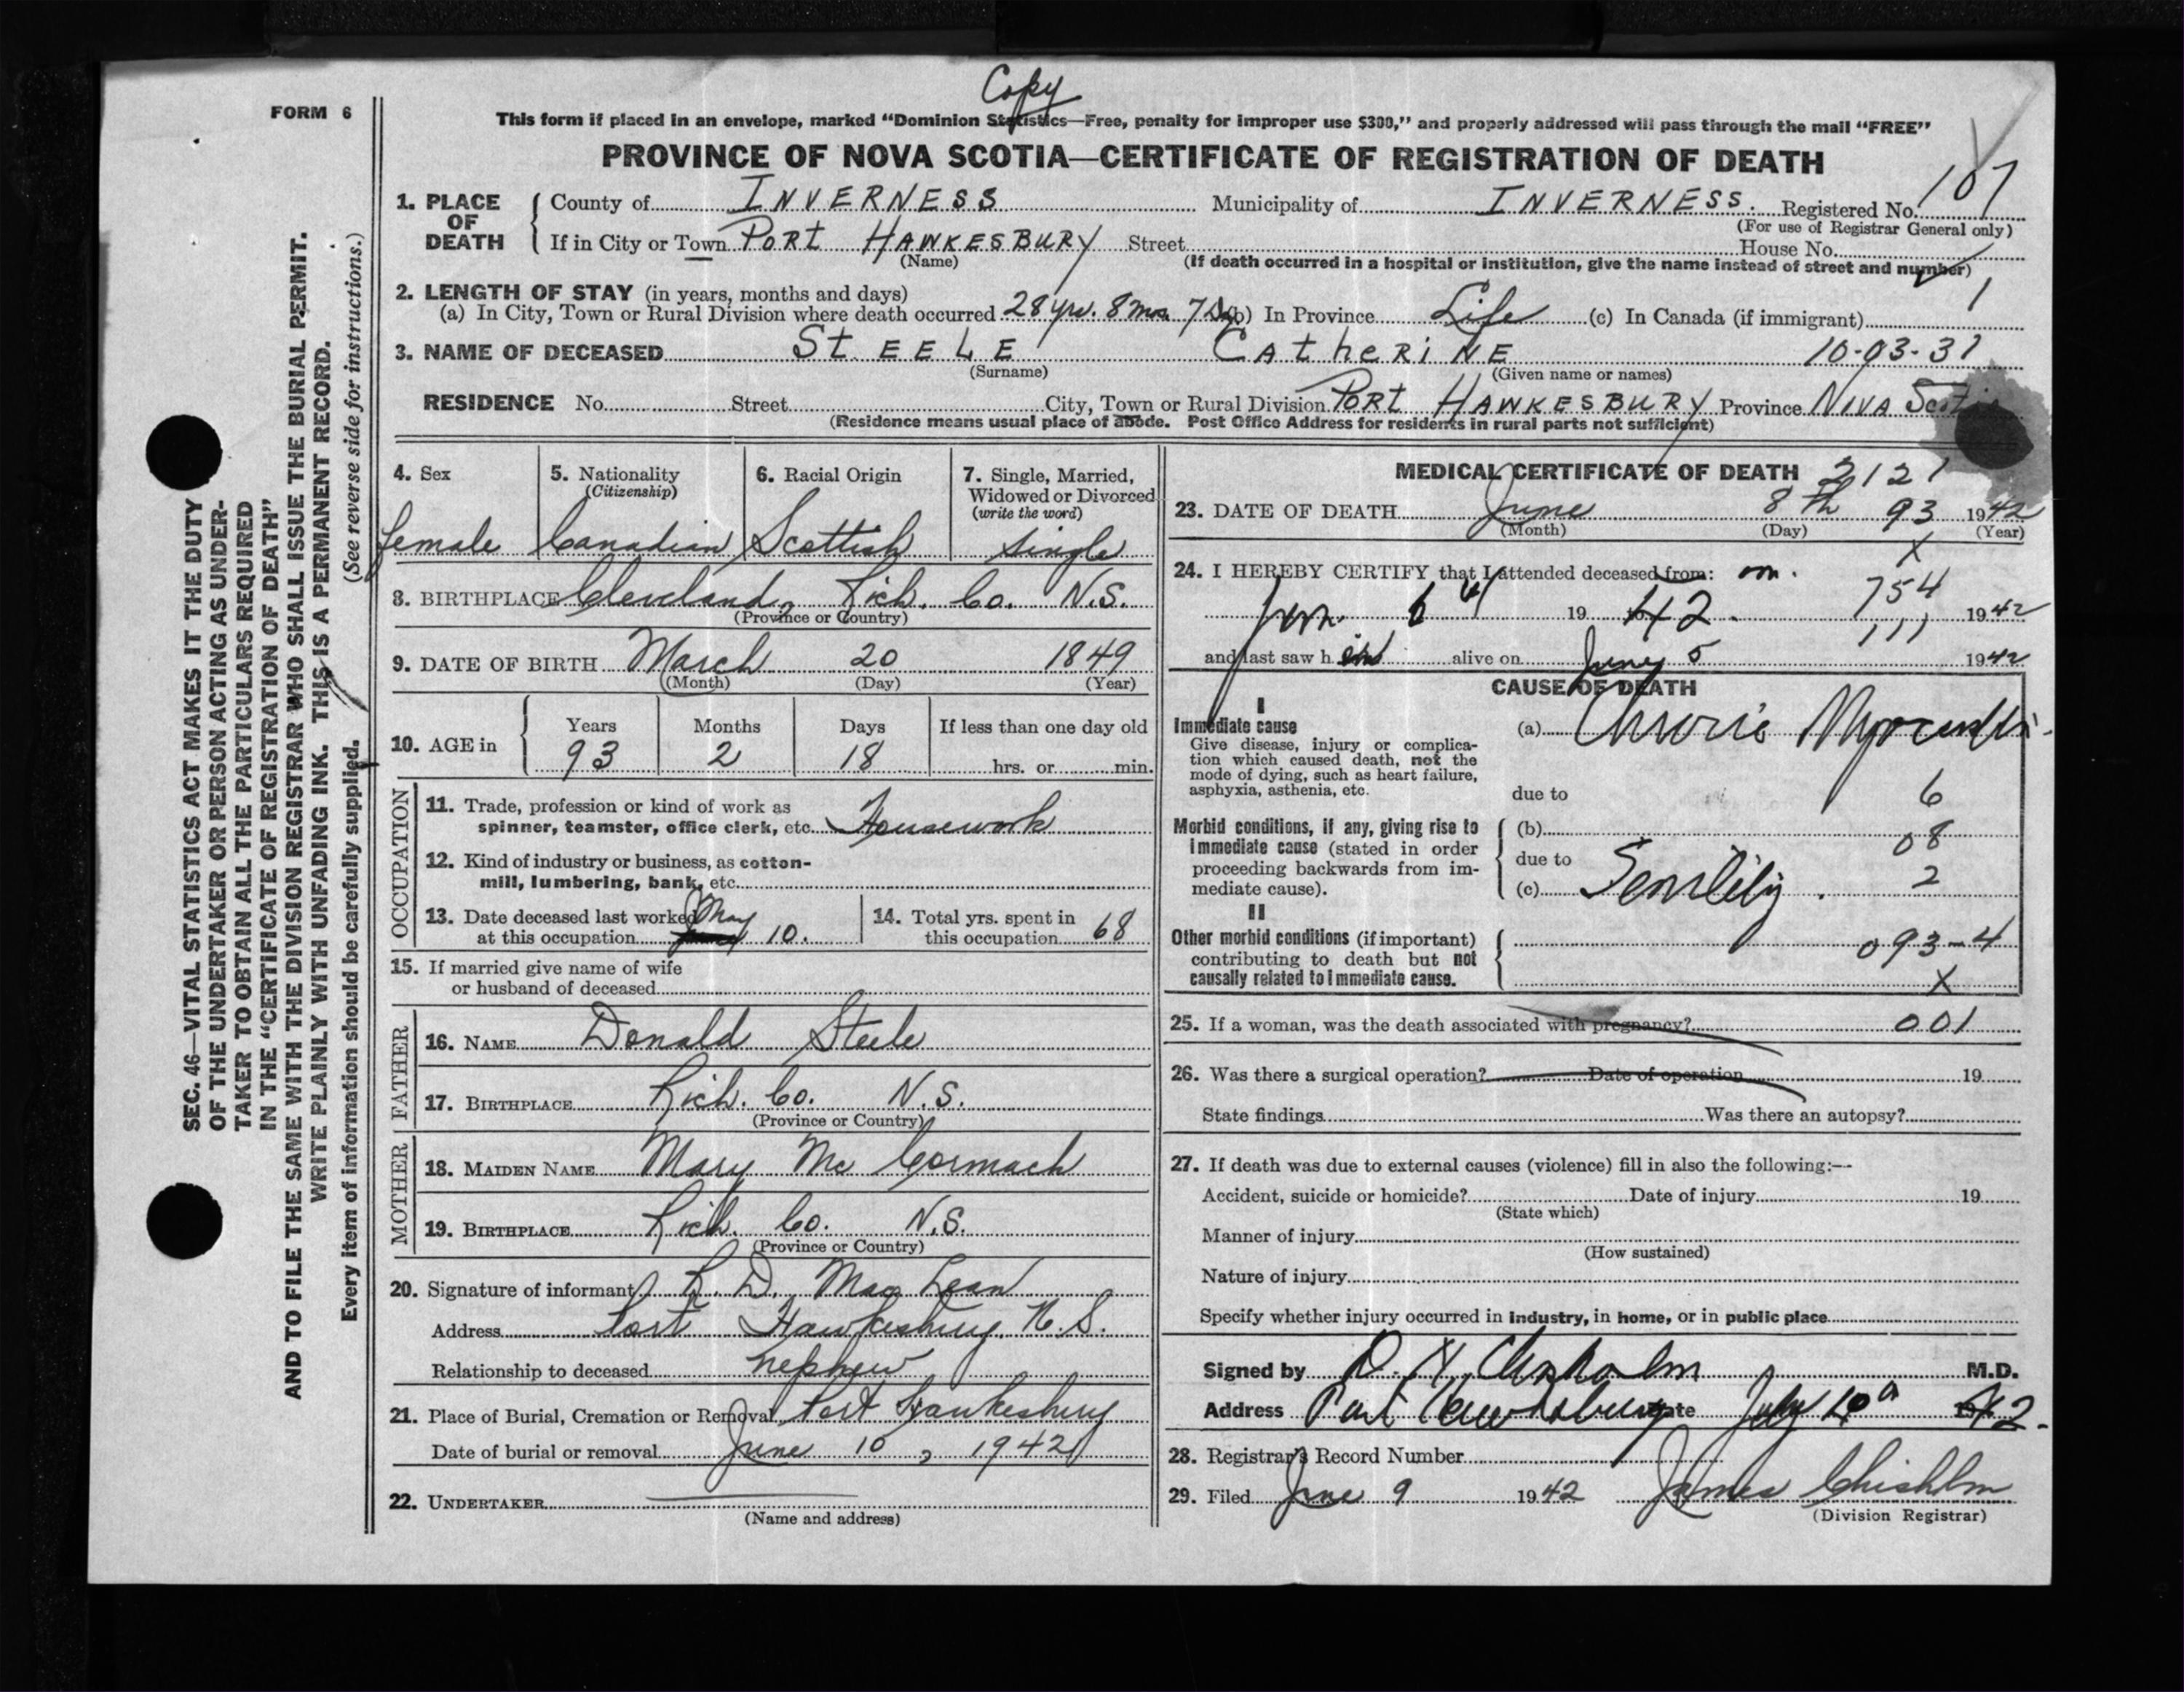 Copy
FORM 6
This form if placed in an envelope, marked "Dominion Statistics—Free, penalty for improper use $300," and properly addressed will pass through the mail "FREE"
PROVINCE OF NOVA SCOTIA—CERTIFICATE OF REGISTRATION OF DEATH
1. PLACE OF DEATH County of INVERNESS Municipality of INVERNESS. Registered No. 107
(For use of Registrar General only)
If in City or Town PORT HAWKESBURY Street House No.
(Name) (If death occurred in a hospital or institution, give the name instead of street and number)
2. LENGTH OF STAY (in years, months and days) 1
(a) In City, Town or Rural Division where death occurred 28 yrs. 8 mos 7 Ds (b) In Province Life (c) In Canada (if immigrant)
3. NAME OF DECEASED STEELE CATHERINE 10-03-31
(Surname) (Given name or names)
RESIDENCE No. Street City, Town or Rural Division PORT HAWKESBURY Province NIVA Scotia
(Residence means usual place of abode. Post Office Address for residents in rural parts not sufficient)
4. Sex 5. Nationality (Citizenship) 6. Racial Origin 7. Single, Married, Widowed or Divorced (write the word)
female Canadian Scottish single
8. BIRTHPLACE Cleveland, Rich. Co. N.S.
(Province or Country)
9. DATE OF BIRTH March 20 1849
(Month) (Day) (Year)
10. AGE in Years Months Days If less than one day old
93 2 18 hrs. or min.
OCCUPATION
11. Trade, profession or kind of work as
spinner, teamster, office clerk, etc. Housework
12. Kind of industry or business, as cotton-
mill, lumbering, bank, etc.
13. Date deceased last worked May
at this occupation 10.
14. Total yrs. spent in
this occupation 68
15. If married give name of wife
or husband of deceased
FATHER
16. NAME Donald Steele
17. BIRTHPLACE Rich. Co. N.S.
(Province or Country)
MOTHER
18. MAIDEN NAME Mary Mc Cormack
19. BIRTHPLACE Rich. Co. N.S.
(Province or Country)
20. Signature of informant R. D. Mac Lean
Address Port Hawkesbury, N.S.
Relationship to deceased nephew
21. Place of Burial, Cremation or Removal Port Hawkesbury
Date of burial or removal June 10, 1942
22. UNDERTAKER
(Name and address)
MEDICAL CERTIFICATE OF DEATH 2121
23. DATE OF DEATH June 8th 93 1942
(Month) (Day) (Year)
X
24. I HEREBY CERTIFY that I attended deceased from: on.
19 42. 754 1942
111
and last saw h alive on 5 1942
CAUSE OF DEATH
I
Immediate cause
Give disease, injury or complica-
tion which caused death, not the
mode of dying, such as heart failure,
asphyxia, asthenia, etc.
(a) Chronic Myocarditis
due to 6
Morbid conditions, if any, giving rise to
immediate cause (stated in order
proceeding backwards from im-
mediate cause).
(b) 08
due to
(c) Senility. 2
II
Other morbid conditions (if important)
contributing to death but not
causally related to immediate cause.
093-4
X
25. If a woman, was the death associated with pregnancy? 001
26. Was there a surgical operation? Date of operation 19
State findings Was there an autopsy?
27. If death was due to external causes (violence) fill in also the following:—
Accident, suicide or homicide? Date of injury 19
(State which)
Manner of injury
(How sustained)
Nature of injury
Specify whether injury occurred in industry, in home, or in public place
Signed by D. H. Chisholm M.D.
Address Port Hawkesbury Date July 10 1942.
28. Registrar's Record Number
29. Filed June 9 1942 James Chishlm
(Division Registrar)
SEC. 46—VITAL STATISTICS ACT MAKES IT THE DUTY
OF THE UNDERTAKER OR PERSON ACTING AS UNDER-
TAKER TO OBTAIN ALL THE PARTICULARS REQUIRED
IN THE "CERTIFICATE OF REGISTRATION OF DEATH"
AND TO FILE THE SAME WITH THE DIVISION REGISTRAR WHO SHALL ISSUE THE BURIAL PERMIT.
WRITE PLAINLY WITH UNFADING INK. THIS IS A PERMANENT RECORD.
Every item of information should be carefully supplied. (See reverse side for instructions.)